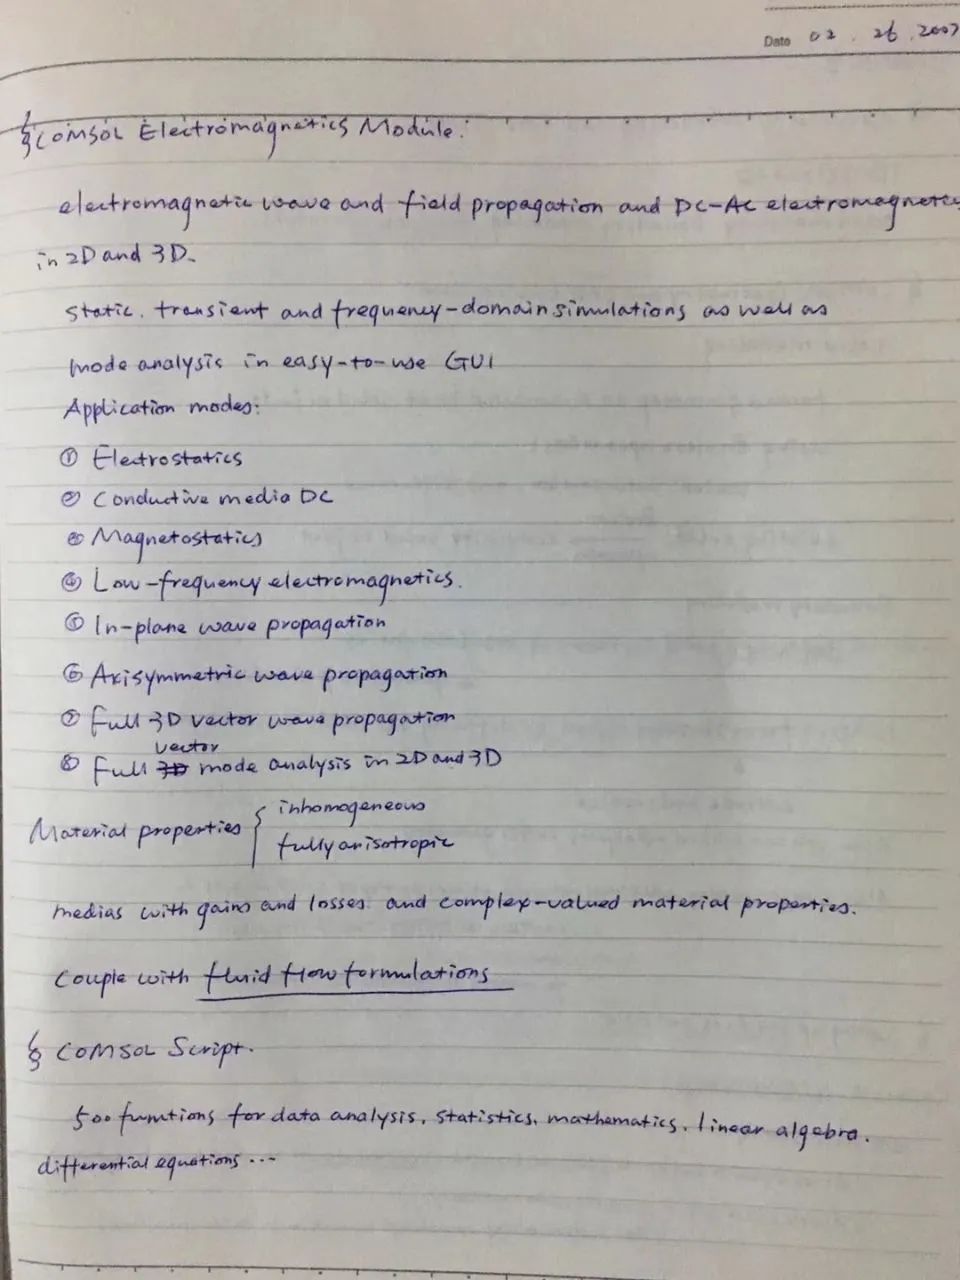 Date 02. 26. 2007
§ COMSOL Electromagnetics Module.
electromagnetic wave and field propagation and DC-AC electromagnetics
in 2D and 3D.
static. transient and frequency-domain simulations as well as
mode analysis in easy-to-use GUI
Application modes:
① Electrostatics
② Conductive media DC
③ Magnetostatics
④ Low-frequency electromagnetics.
⑤ In-plane wave propagation
⑥ Axisymmetric wave propagation
⑦ Full 3D vector wave propagation
vector
⑧ Full 3D mode analysis in 2D and 3D
Material properties { inhomogeneous
fully anisotropic
medias with gains and losses and complex-valued material properties.
Couple with fluid flow formulations
§ COMSOL Script.
500 funtions for data analysis, statistics, mathematics, linear algebra.
differential equations ...